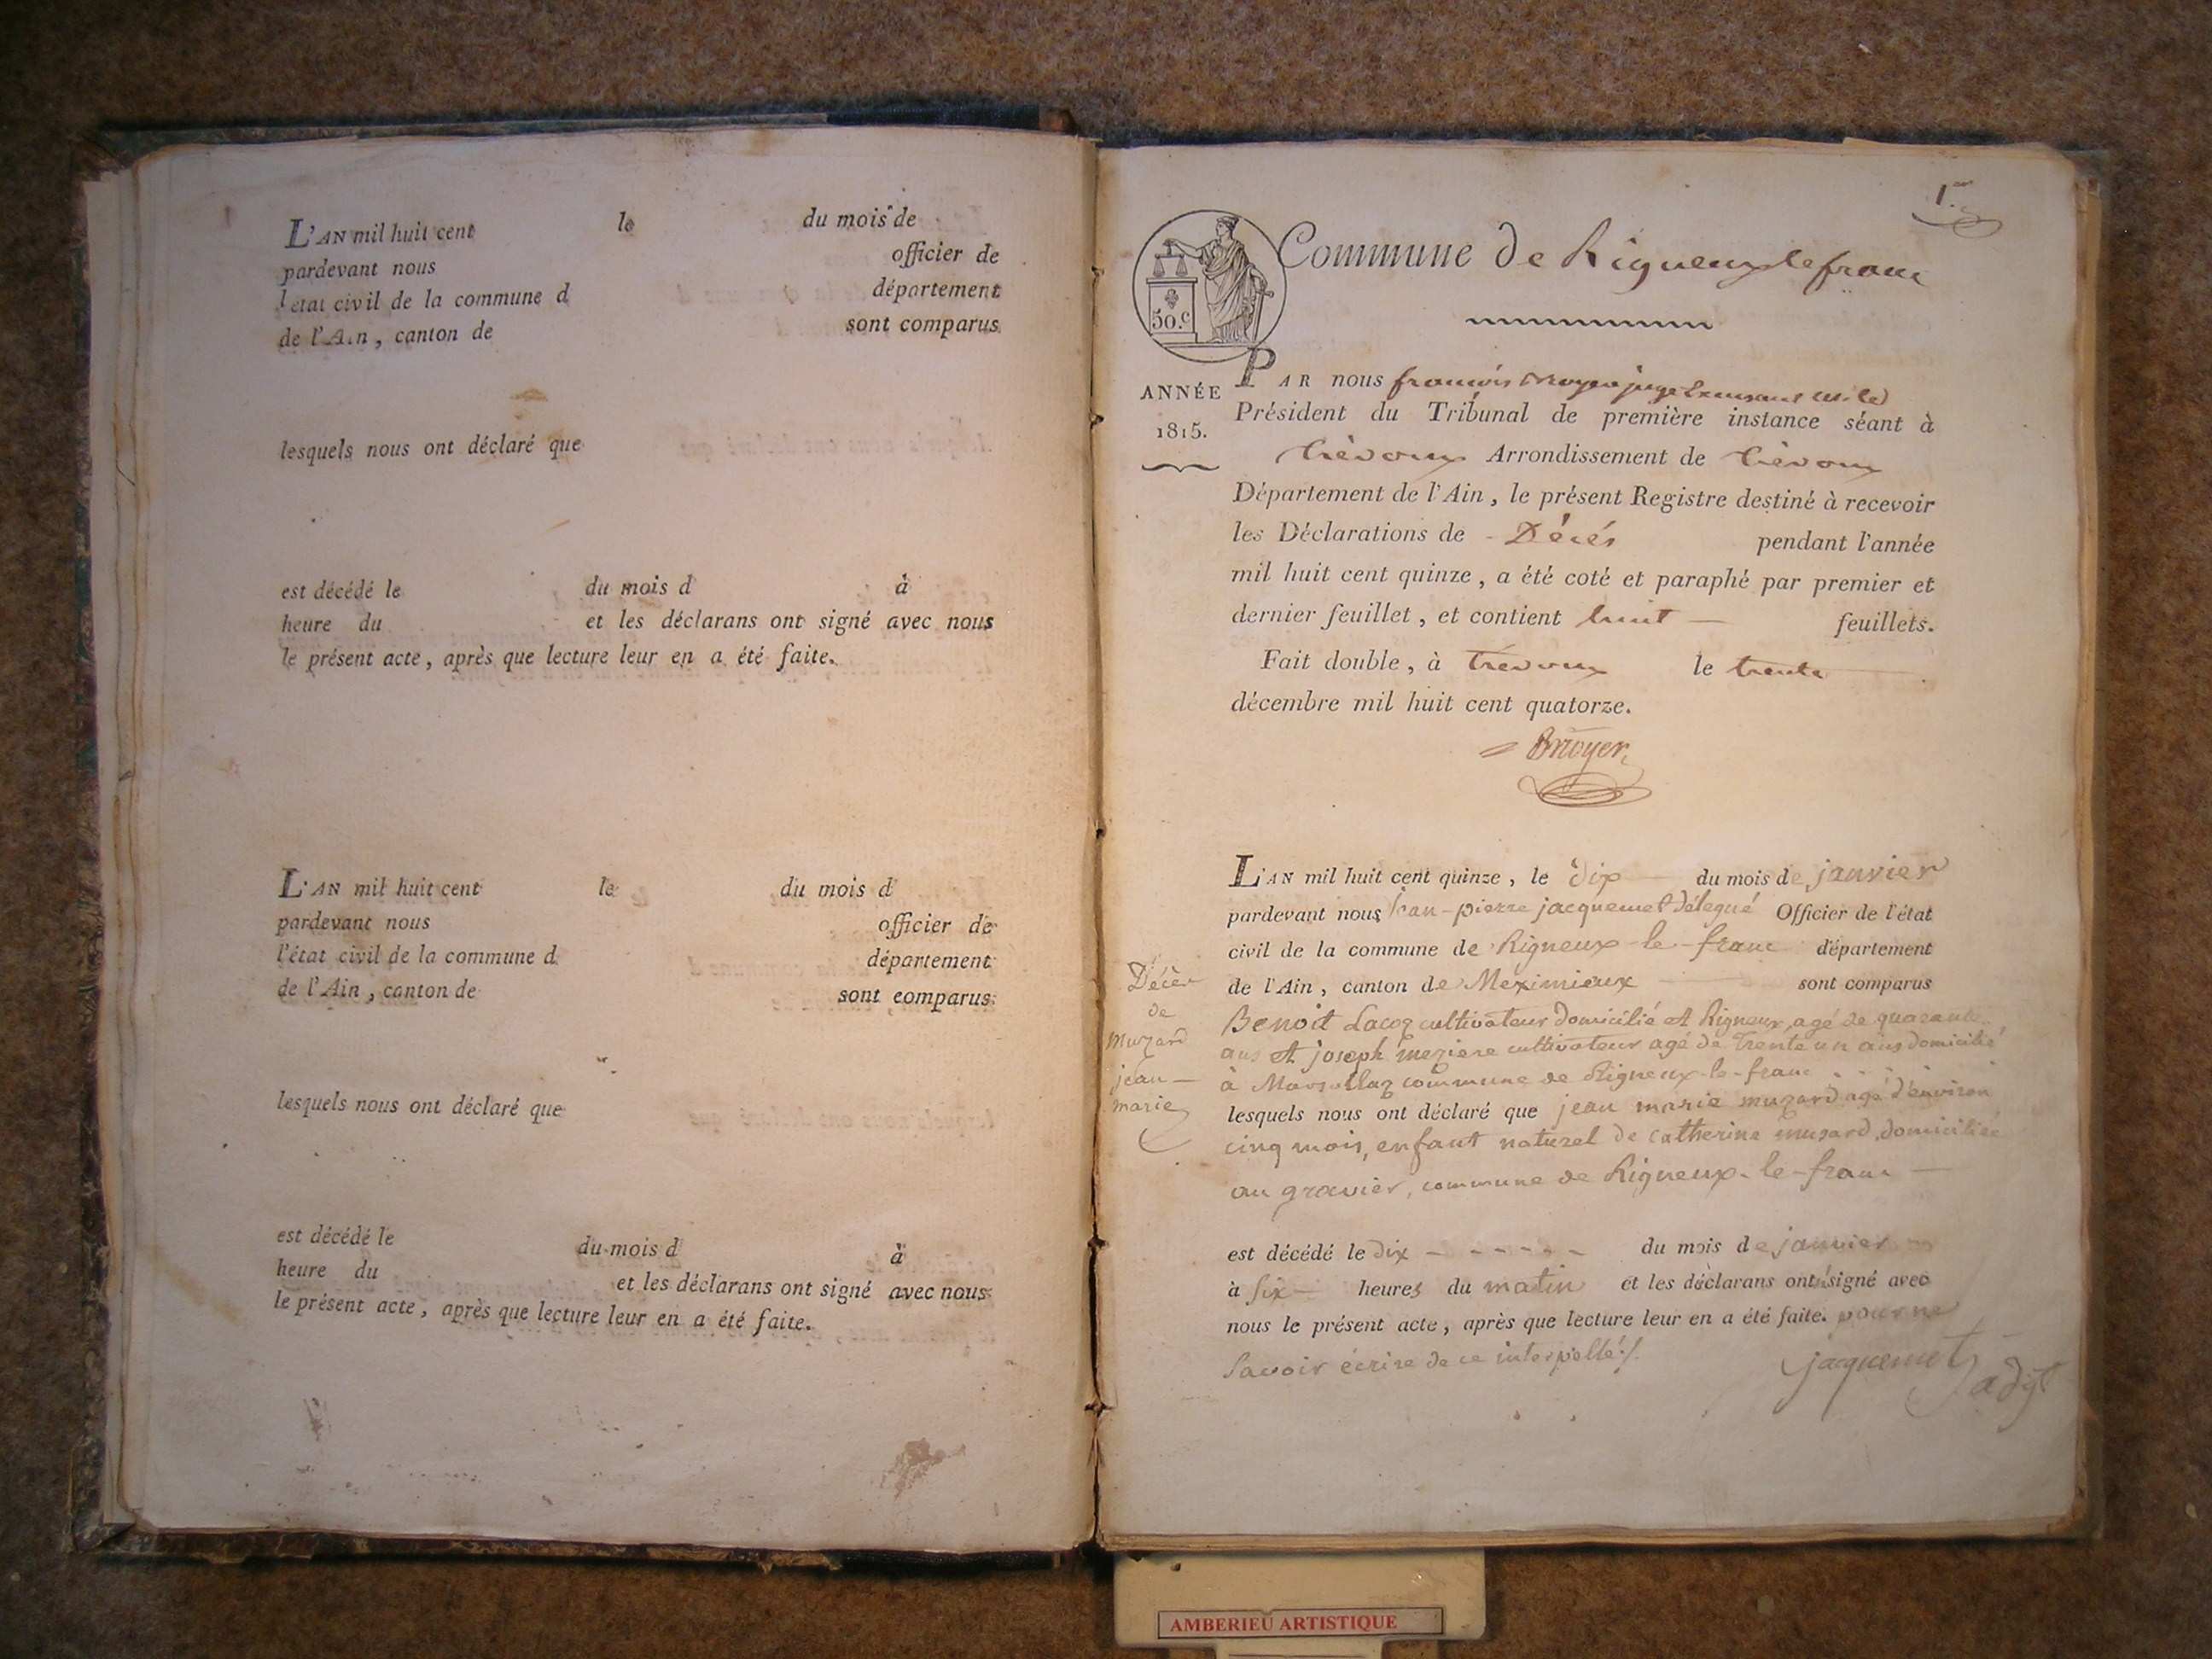 L'AN mil huit cent le du mois de
pardevant nous officier de
l'etat civil de la commune d département
de l'Ain, canton de sont comparus
lesquels nous ont déclaré que
est décédé le du mois d à
heure du et les déclarans ont signé avec nous
le présent acte, après que lecture leur en a été faite.
L'AN mil huit cent le du mois d
pardevant nous officier de
l'état civil de la commune d département
de l'Ain, canton de sont comparus
lesquels nous ont déclaré que
est décédé le du mois d à
heure du et les déclarans ont signé avec nous
le présent acte, après que lecture leur en a été faite.
1.er
Commune de Rigneux le franc
50.c
ANNÉE
1815.
PAR nous françois Broyer juge
Président du Tribunal de première instance séant à
trévoux Arrondissement de trévoux
Département de l'Ain, le présent Registre destiné à recevoir
les Déclarations de Décés pendant l'année
mil huit cent quinze, a été coté et paraphé par premier et
dernier feuillet, et contient huit feuillets.
Fait double, à trévoux le trente
décembre mil huit cent quatorze.
Broyer
Décès
de
Muzard
jean-
marie
L'AN mil huit cent quinze, le dix du mois de janvier
pardevant nous jean-pierre jacquemet délegué Officier de l'état
civil de la commune de Rigneux-le-franc département
de l'Ain, canton de Meximieux sont comparus
Benoit Lacoq cultivateur domicilié et Rigneux, agé de quarante
ans et joseph meziere cultivateur agé de trente un ans domicilié
à commune de Rigneux-le-franc
lesquels nous ont déclaré que jean marie muzard agé d'environ
cinq mois, enfant naturel de catherine musard, domiciliée
au gravier, commune de Rigneux-le-franc
est décédé le dix du mois de janvier
à six heures du matin et les déclarans ont signé avec
nous le présent acte, après que lecture leur en a été faite. pour ne
savoir écrire de ce interpellé./.
jaquemet adjt
AMBERIEU ARTISTIQUE